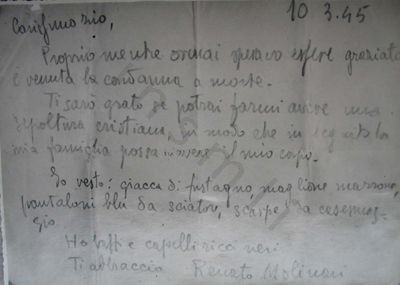 10 3.45
Carissimo zio,
Proprio mentre ormai speravo essere graziato
è venuta la condanna a morte.
Ti sarò grato se potrai farmi avere una
sepoltura cristiana, in modo che in seguito la
mia famiglia possa avere il mio corpo.
Io vesto: giacca di fustagno maglione marrone,
pantaloni blu da sciatore, scarpe da
Ho baffi e capelli ricci neri
Ti abbraccio Renato Molinari